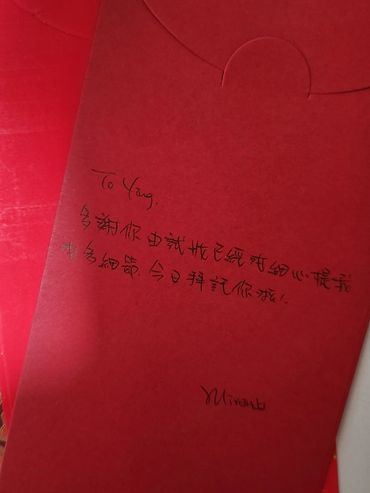 To Yang,
多謝你由試妝已經好細心提我
好多細節, 今日拜託你啦!